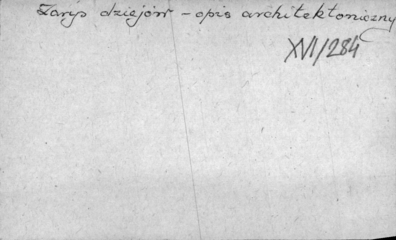 Zarys dziejów – opis architektoniczny
XVI/284